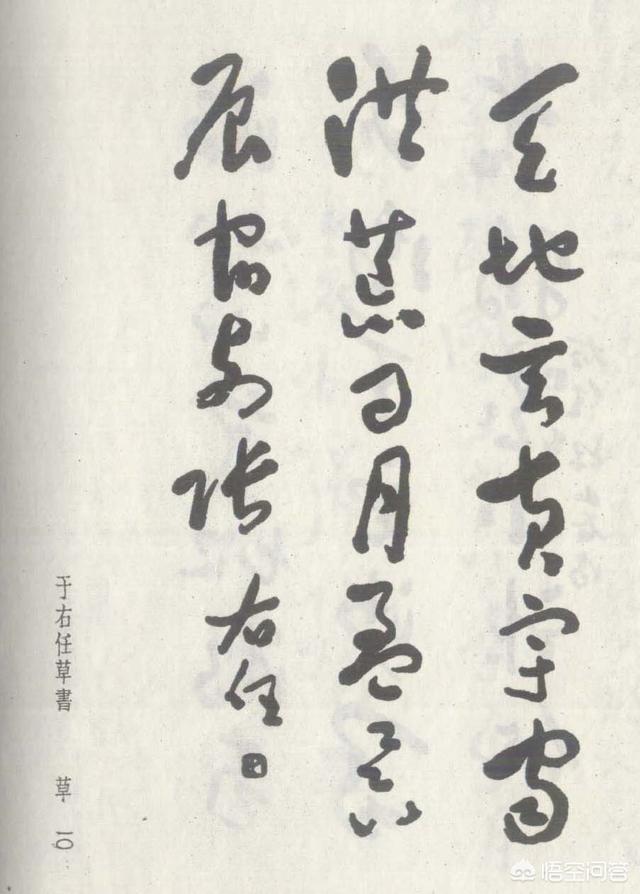 天地玄黃宇宙
洪荒日月盈昃
辰宿列張 右任
于右任草書 草 一〇
悟空问答